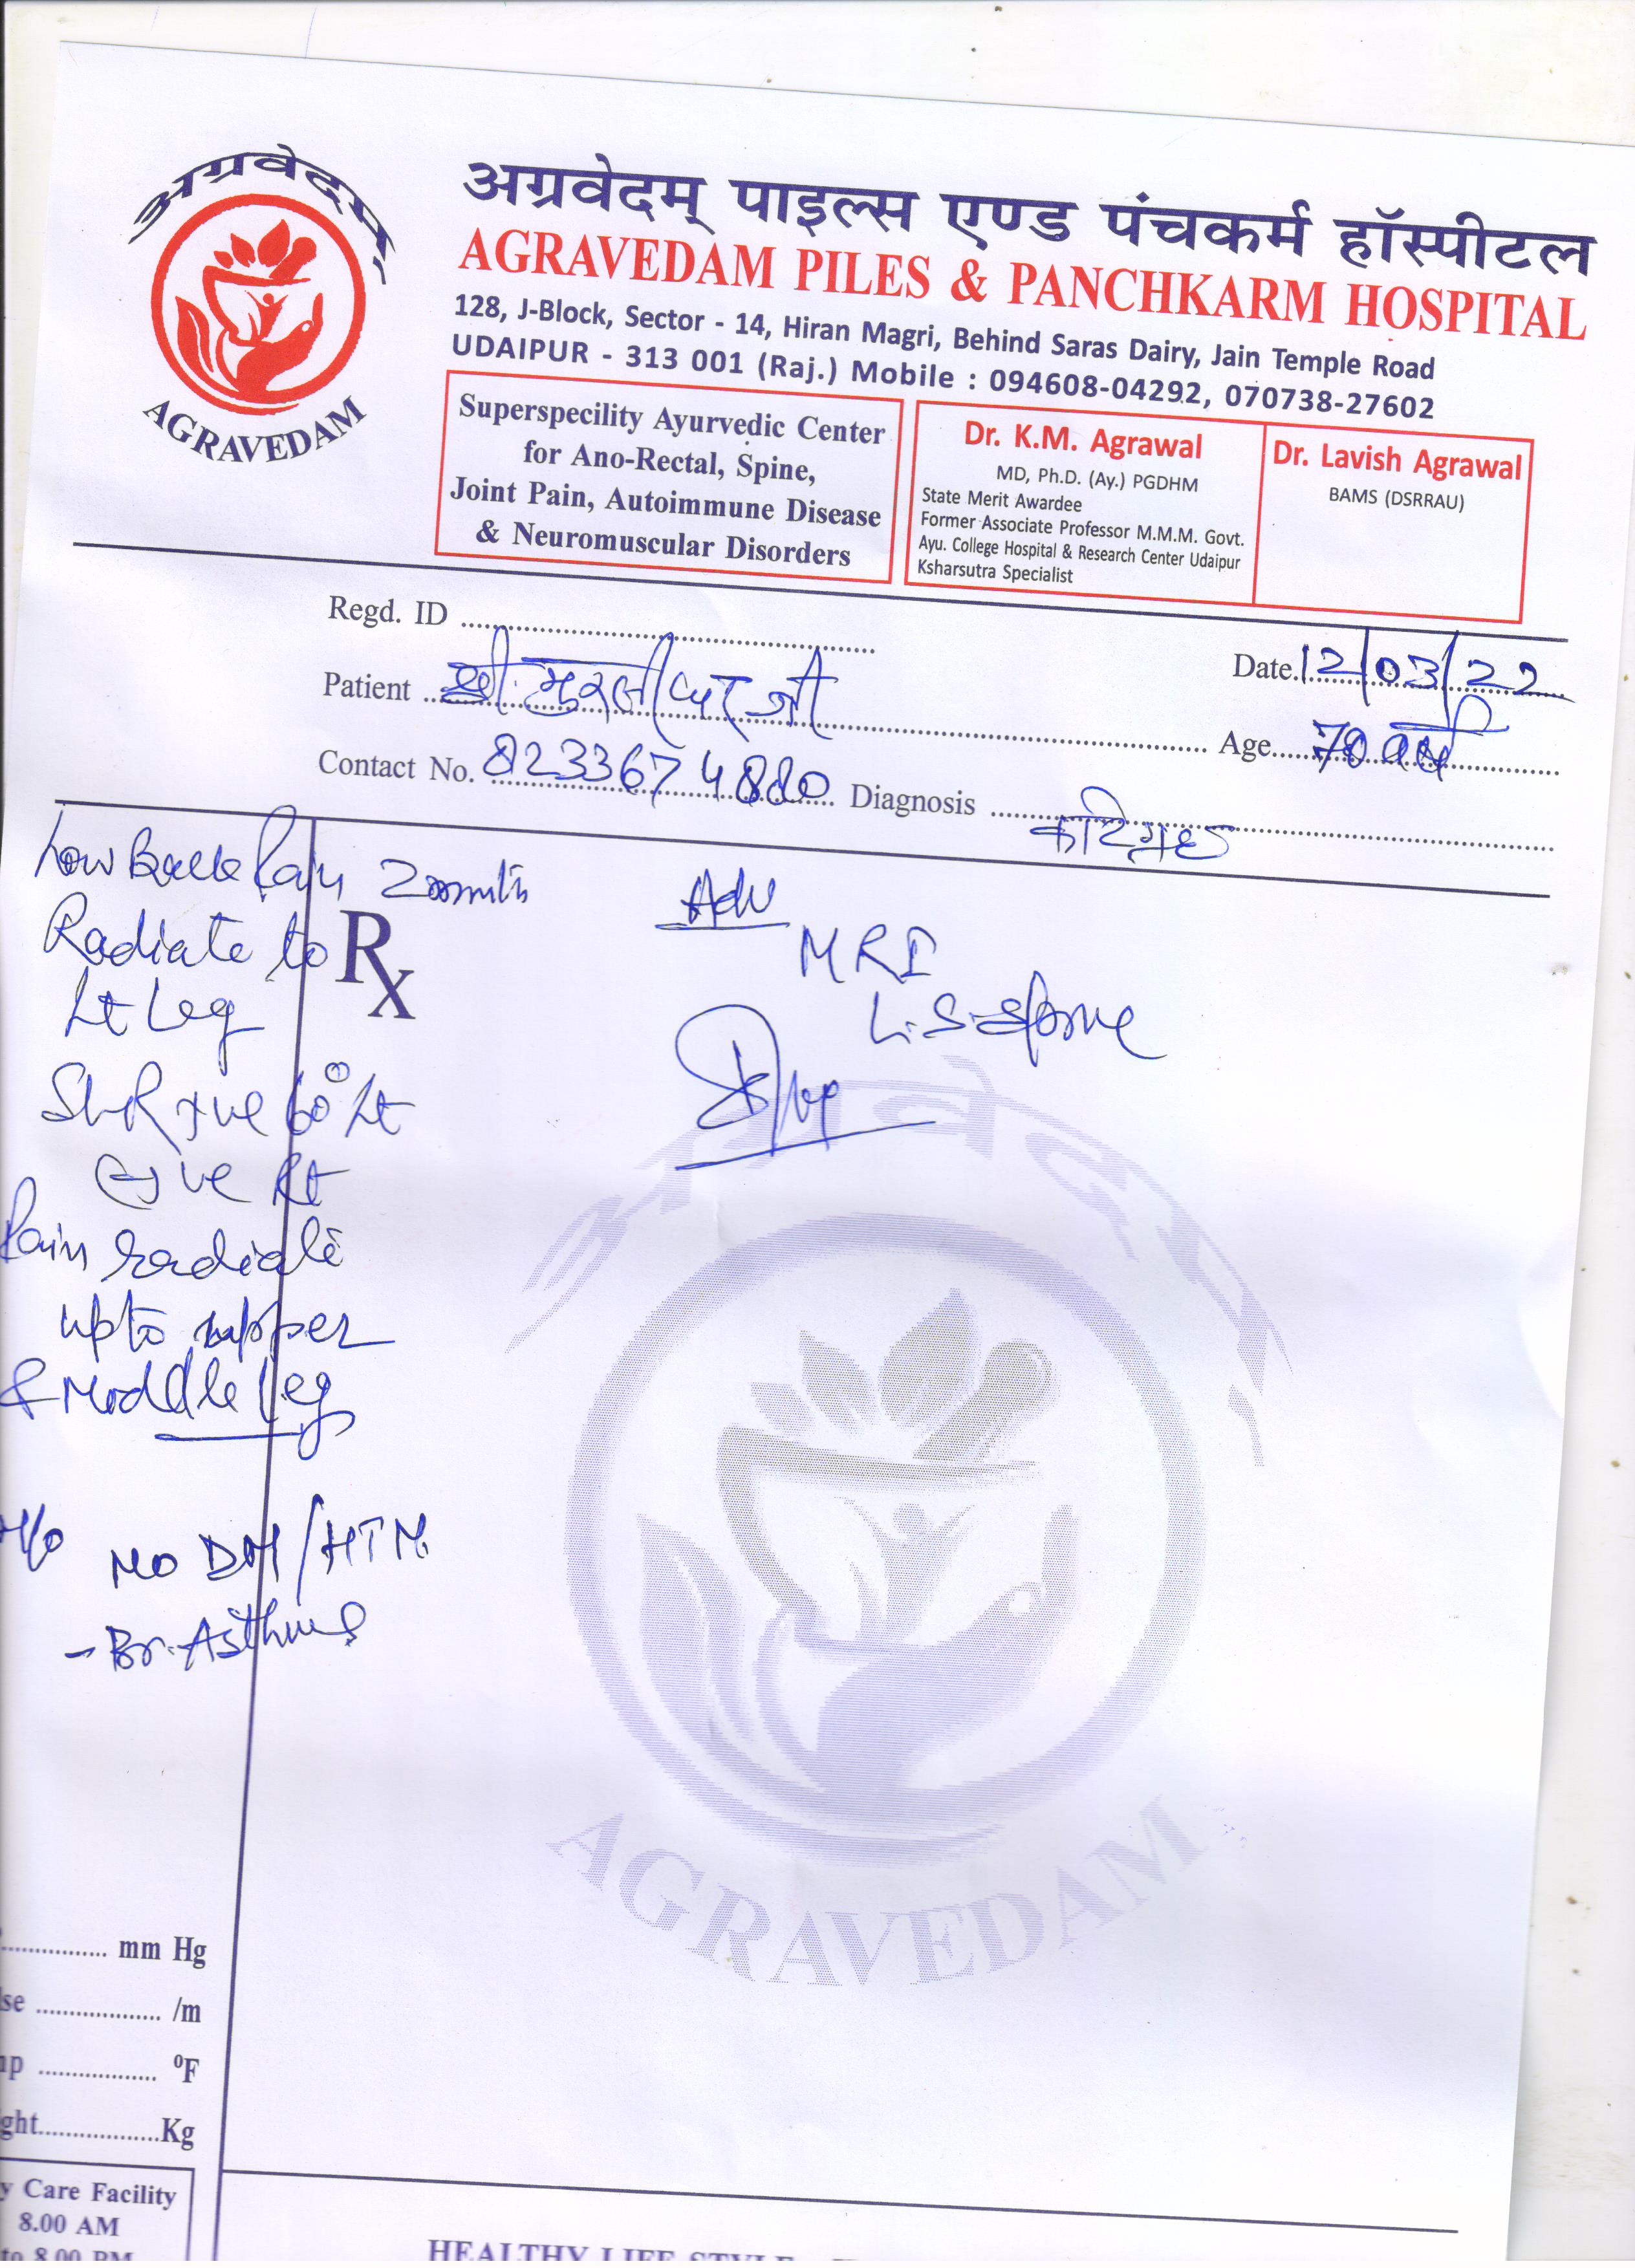 अग्रवेदम्
AGRAVEDAM
अग्रवेदम् पाइल्स एण्ड पंचकर्म हॉस्पीटल
AGRAVEDAM PILES & PANCHKARM HOSPITAL
128, J-Block, Sector - 14, Hiran Magri, Behind Saras Dairy, Jain Temple Road
UDAIPUR - 313 001 (Raj.) Mobile : 094608-04292, 070738-27602
Superspecility Ayurvedic Center
for Ano-Rectal, Spine,
Joint Pain, Autoimmune Disease
& Neuromuscular Disorders
Dr. K.M. Agrawal
MD, Ph.D. (Ay.) PGDHM
State Merit Awardee
Former Associate Professor M.M.M. Govt.
Ayu. College Hospital & Research Center Udaipur
Ksharsutra Specialist
Dr. Lavish Agrawal
BAMS (DSRRAU)
Regd. ID
Date. 12/03/22
Patient श्री मुरलीधर जी
Age. 70 वर्ष
Contact No. 8233674880 Diagnosis कटिग्रह
Low Back Pain 2 months
Radiate to
Lt Leg
Rx
SLR +ve 60° Lt
-ve Rt
Pain radiate
upto upper
& Middle leg
H/o No DM/HTN
- Br. Asthma
Adv
MRI
L.S. Spine
अग्रवेदम्
AGRAVEDAM
mm Hg
se /m
np °F
ght. Kg
y Care Facility
8.00 AM
to 8.00 PM
HEALTHY LIFE STYLE